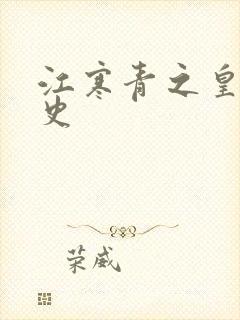 江寒青之皇
史
荣威